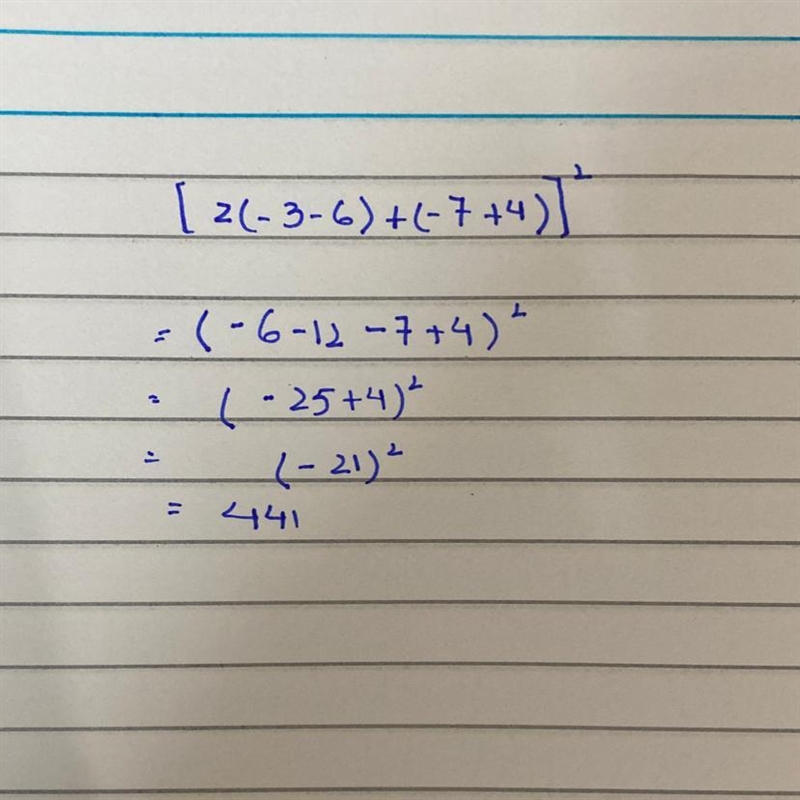 [2(-3-6)+(-7+4)]²
=(-6-12-7+4)²
= (-25+4)²
= (-21)²
= 441